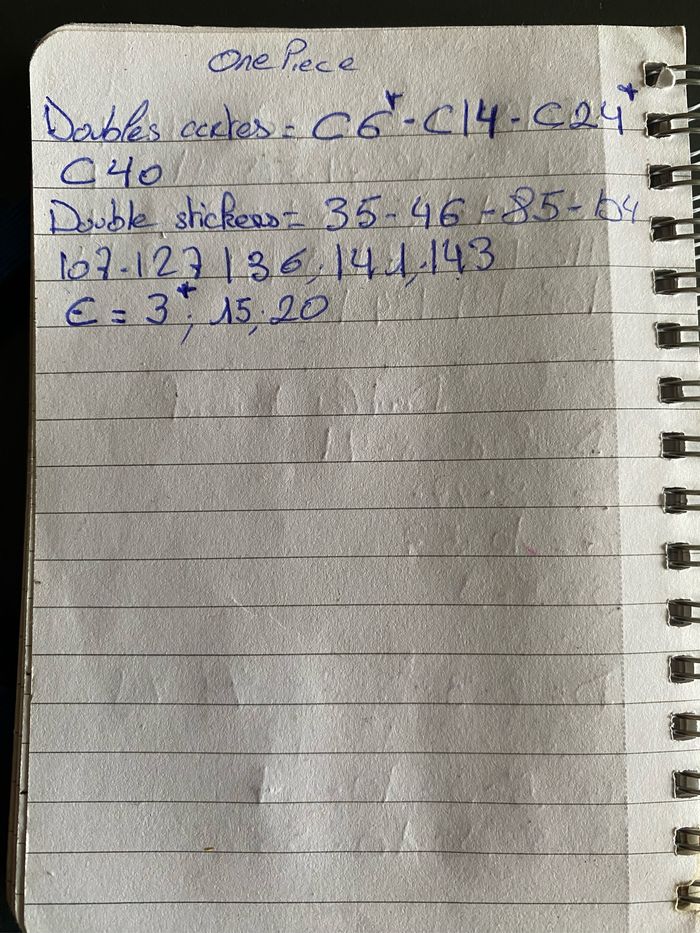 One Piece
Doubles cartes = C6* - C14 - C24*
C40
Double stickers = 35 - 46 - 85 - 104
107 - 127 136, 141, 143
E = 3*, 15, 20